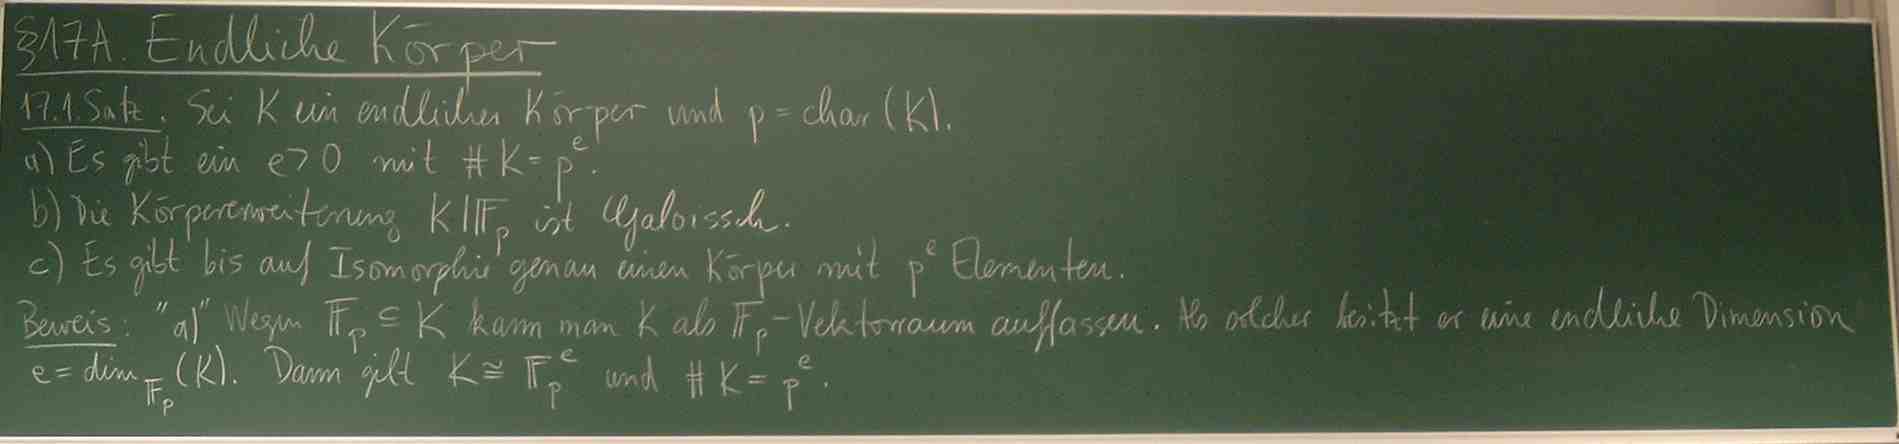 §17A. Endliche Körper
17.1. Satz. Sei K ein endlicher Körper und p = char(K).
a) Es gibt ein e>0 mit #K = p^e.
b) Die Körpererweiterung K|𝔽_p ist Galoissch.
c) Es gibt bis auf Isomorphie genau einen Körper mit p^e Elementen.
Beweis: "a)" Wegen 𝔽_p ⊆ K kann man K als 𝔽_p-Vektorraum auffassen. Als solcher besitzt er eine endliche Dimension
e = dim_{𝔽_p}(K). Dann gilt K ≅ 𝔽_p^e und #K = p^e.